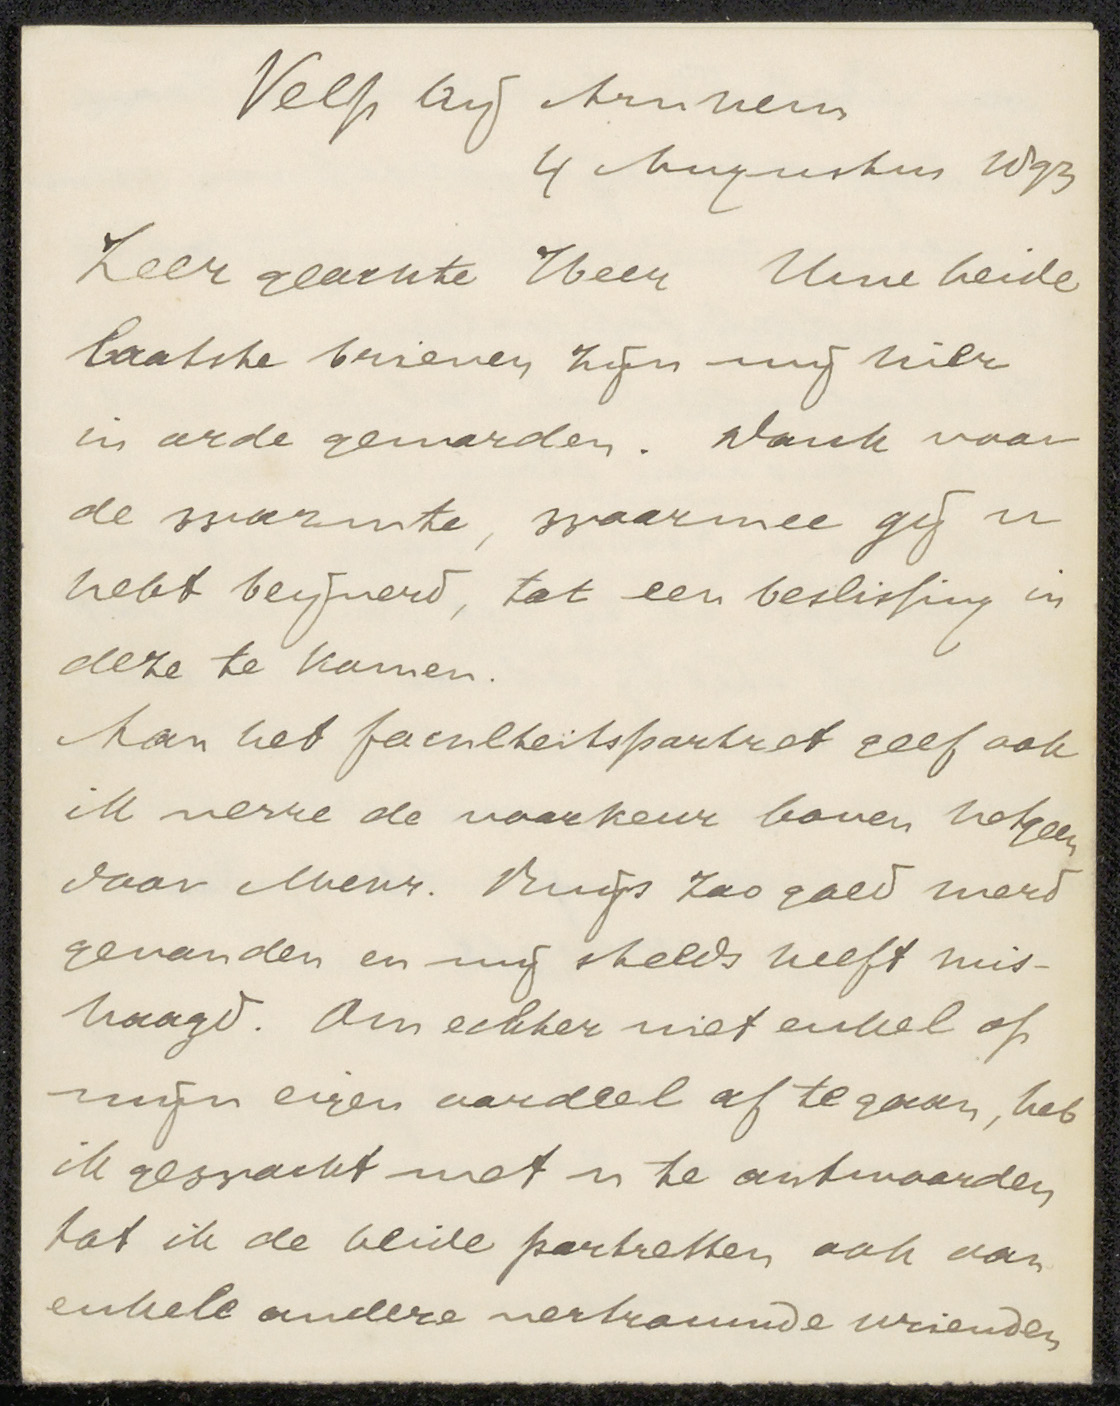 Velp bij Arnhem
4 Augustus 1893
Zeer geachte Heer Uwe beide
laatste brieven zijn mij hier
in orde geworden. Dank voor
de warmte, waarmee gij u
hebt beijverd, tot een beslissing in
deze te komen.
Aan het faculteitsportret geef ook
ik verre de voorkeur boven hetgeen
door Mevr. Buijs zoo goed werd
gevonden en mij steeds heeft mis-
haagd. Om echter niet enkel op
mijn eigen oordeel af te gaan, heb
ik gewacht met u te antwoorden
tot ik de beide portretten ook aan
enkele andere vertrouwde vrienden